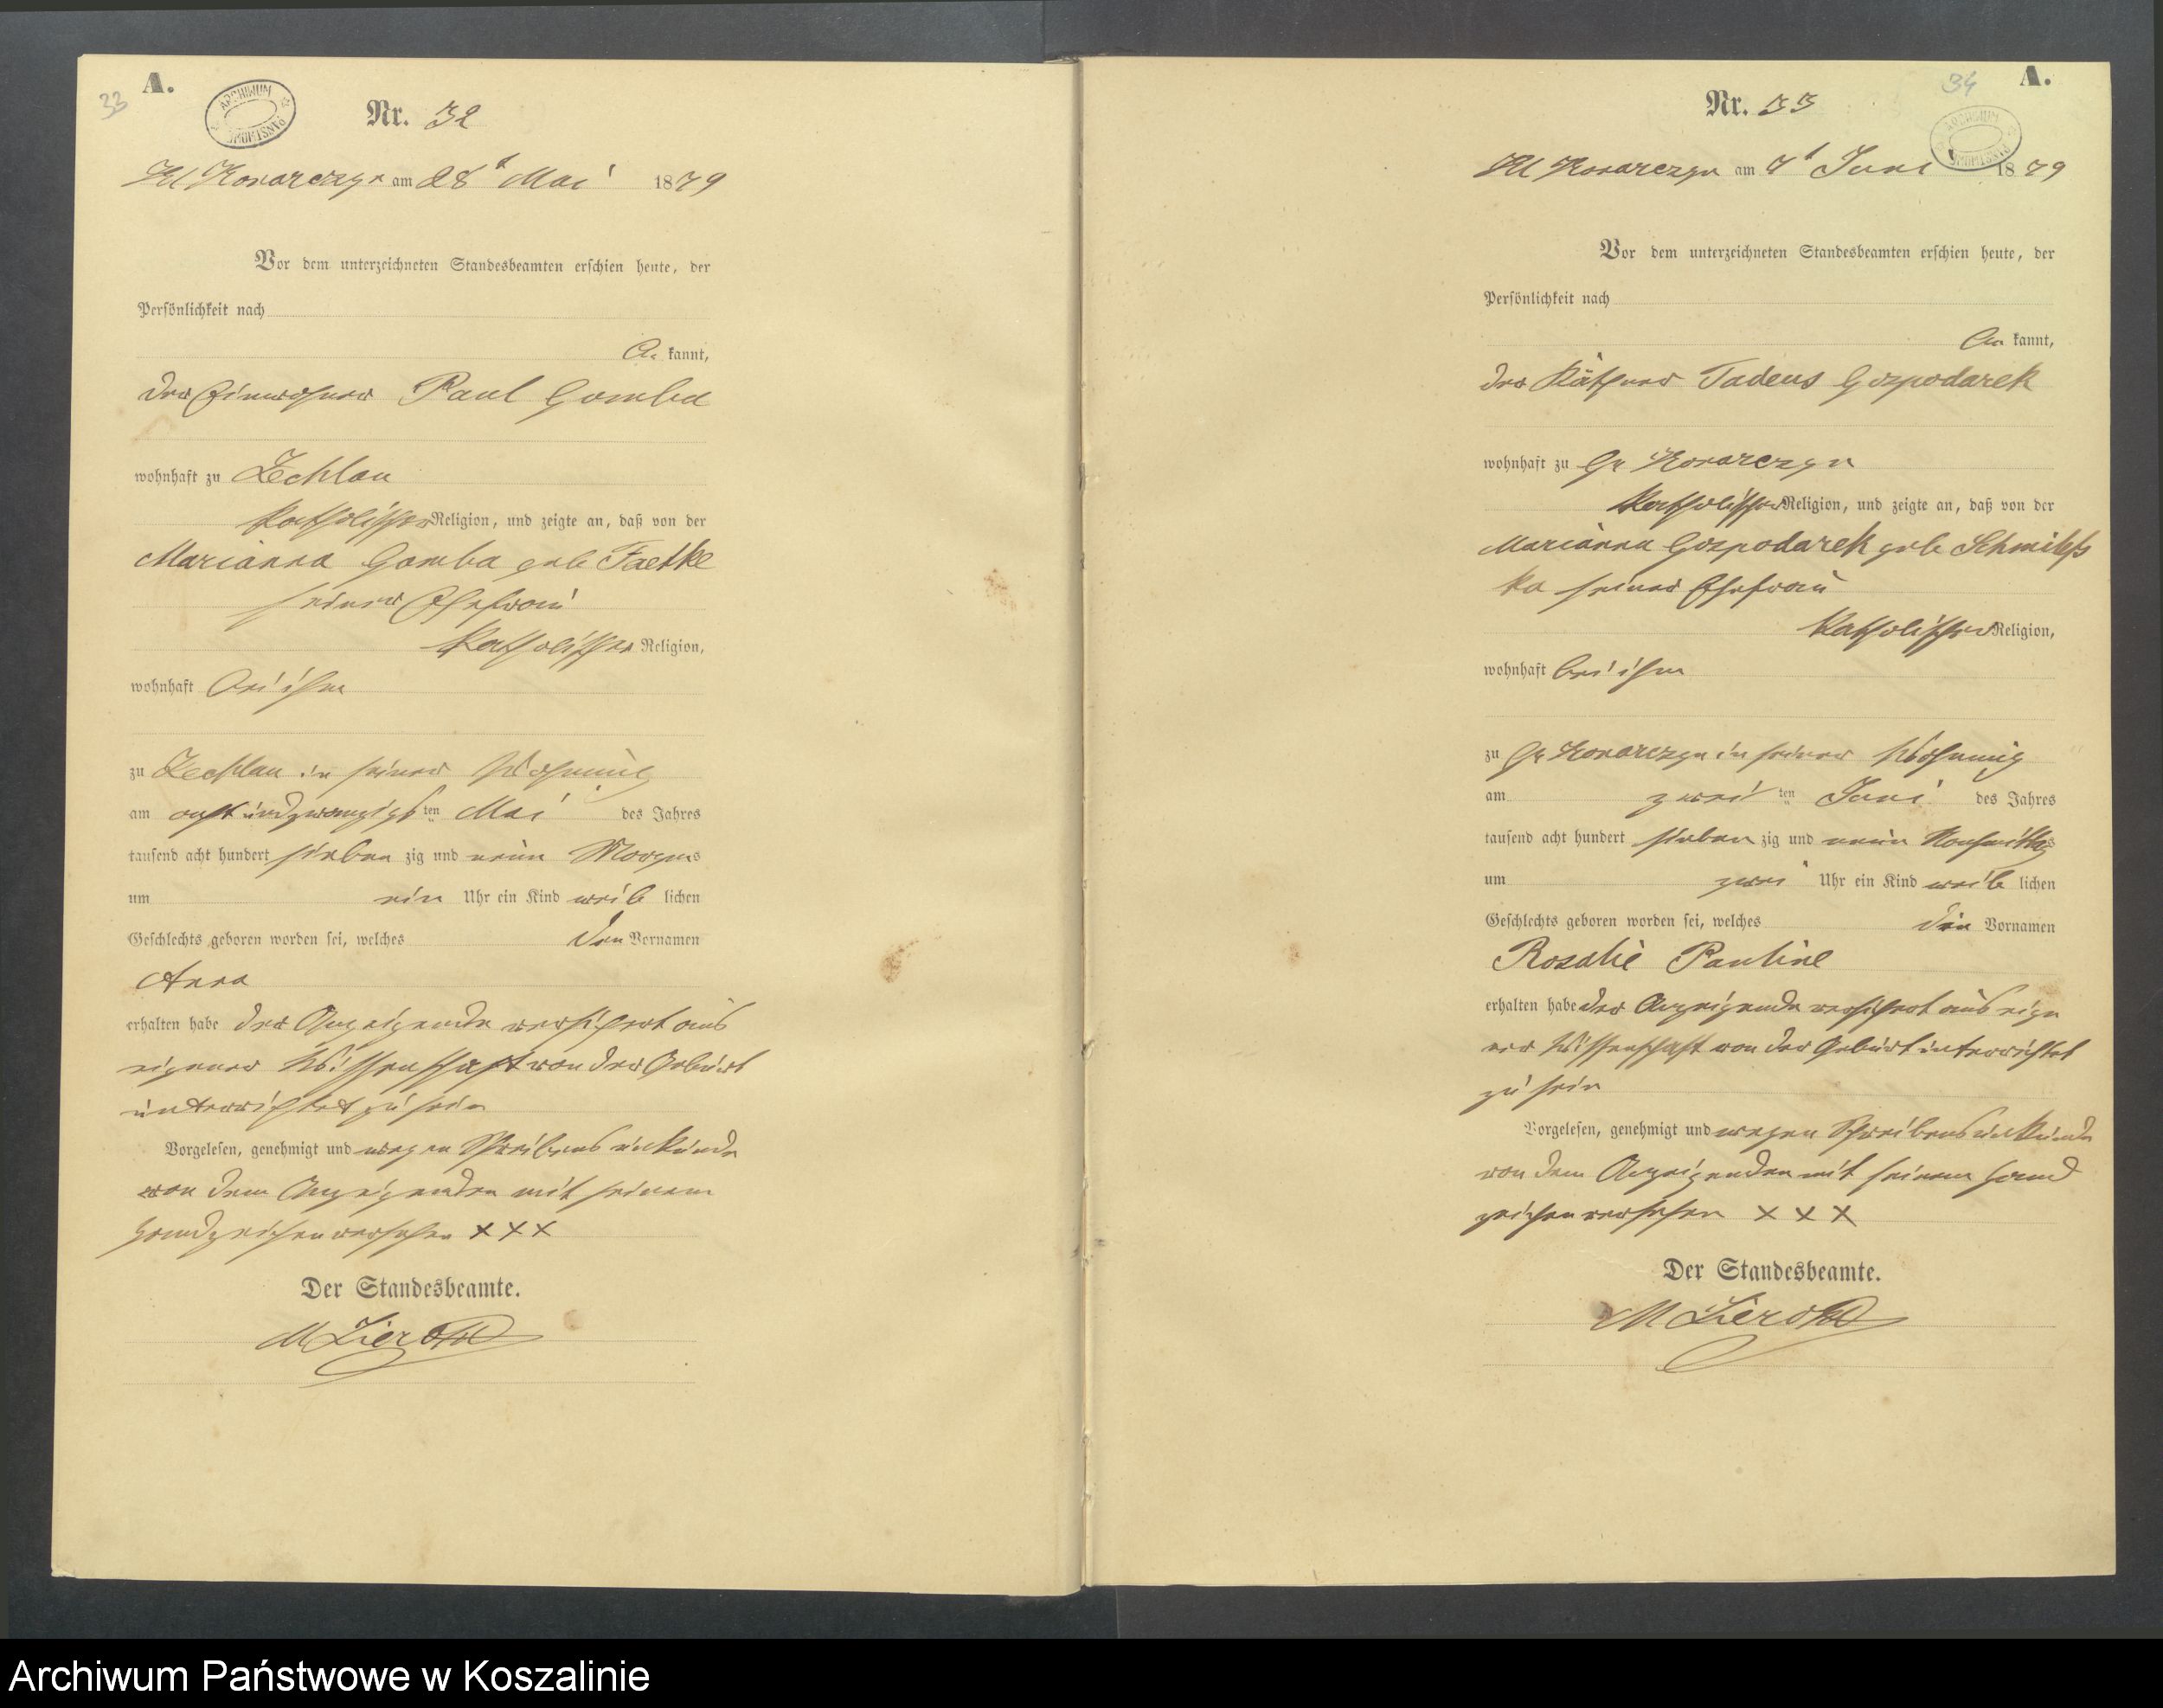 33
A.
ARCHIWUM
PAŃSTWOWE
Nr. 32
Kl Konarczyn am 28t Mai 1879
Vor dem unterzeichneten Standesbeamten erschien heute, der
Persönlichkeit nach
be kannt,
der Einwohner Paul Gomba
wohnhaft zu Zechlau
katholischer Religion, und zeigte an, daß von der
Marianna Gomba geb
seiner Ehefrau
katholischer Religion,
wohnhaft bei ihm
zu Zechlau in seiner Wohnung
am acht und zwanzigsten Mai des Jahres
tausend acht hundert sieben zig und neun Morgens
um ein Uhr ein Kind weib lichen
Geschlechts geboren worden sei, welches den Vornamen
Anna
erhalten habe der Anzeigende versichert aus
eigener Wissenschaft von der Geburt
unterrichtet zu sein
Vorgelesen, genehmigt und wegen Schreibensunkunde
von dem Anzeigenden mit seinem
Handzeichen versehen XXX
Der Standesbeamte.
34
A.
ARCHIWUM
PAŃSTWOWE
Nr. 33
Kl Konarczyn am Juni 1879
Vor dem unterzeichneten Standesbeamten erschien heute, der
Persönlichkeit nach
be kannt,
der Käthner Tadeus Gospodarek
wohnhaft zu Gr Konarczyn
katholischer Religion, und zeigte an, daß von der
Marianna Gospodarek geb
ka seiner Ehefrau
katholischer Religion,
wohnhaft bei ihm
zu Gr Konarczyn in seiner Wohnung
am zwei ten Juni des Jahres
tausend acht hundert sieben zig und neun Nachmittags
um zwei Uhr ein Kind weib lichen
Geschlechts geboren worden sei, welches die Vornamen
Rosalie Pauline
erhalten habe der Anzeigende versichert aus eige
ner Wissenschaft von der Geburt unterrichtet
zu sein
Vorgelesen, genehmigt und wegen Schreibensunkunde
von dem Anzeigenden mit seinem Hand
zeichen versehen X X X
Der Standesbeamte.
Archiwum Państwowe w Koszalinie